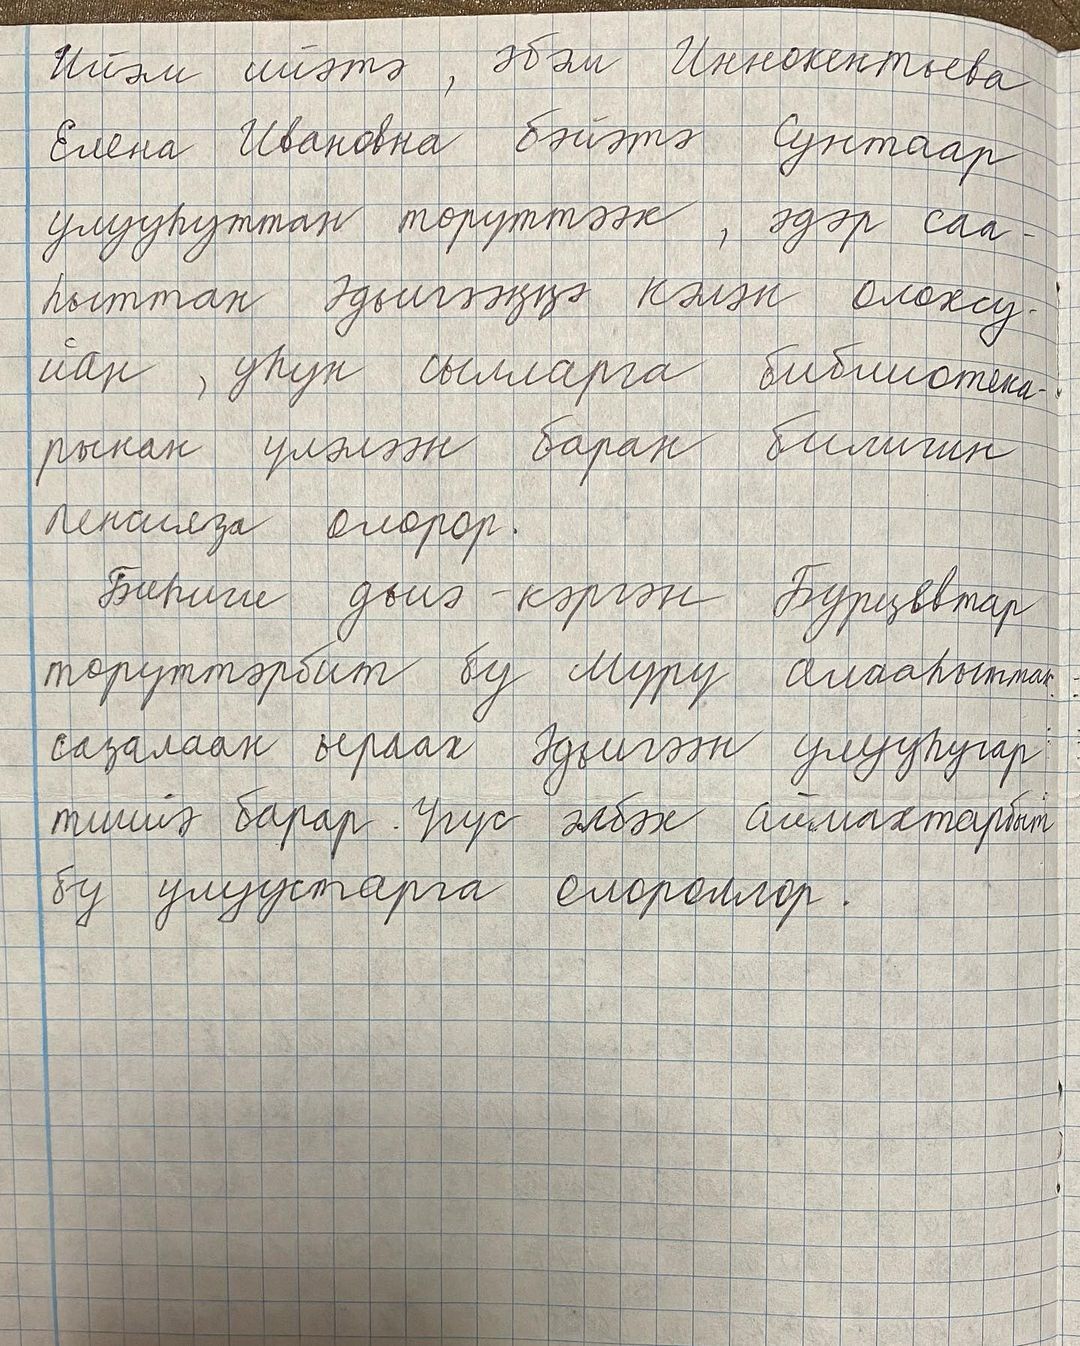 Ийэм ийэтэ, эбэм Иннокентьева
Елена Ивановна бэйэтэ Сунтаар
улууһуттан төрүттээх, эдэр саа-
һыттан Эдьигээҥҥэ кэлэн олохсу-
йан, уһун сылларга библиотека-
рынан үлэлээн баран билигин
пенсияҕа олорор.
Биһиги дьиэ-кэргэн Бурцевтар
төрүттэрбит бу Мүрү алааһыттан
саҕалаан ыраах Эдьигээн улууһугар
тиийэ барар. Угус элбэх аймахтарбыт
бу улуустарга олороллор.